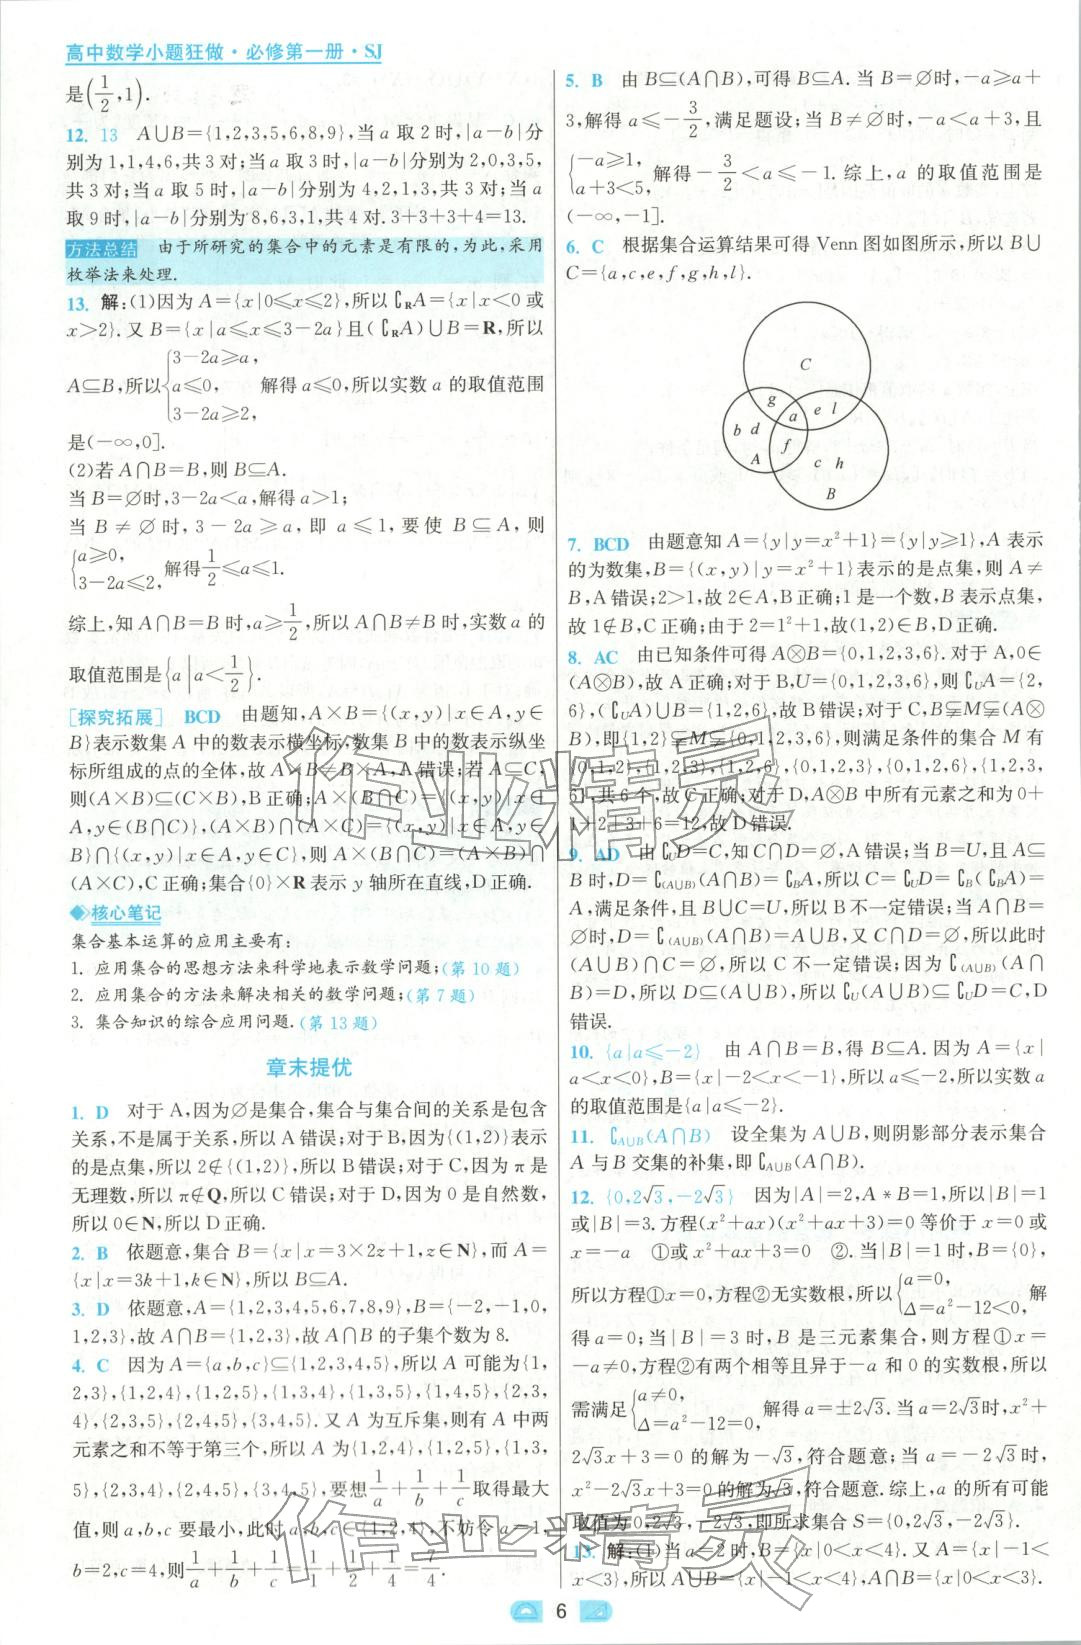 高中数学小题狂做·必修第一册·SJ
是(1/2,1).
12. 13 A∪B={1,2,3,5,6,8,9},当a取2时,|a-b|分
别为1,1,4,6,共3对;当a取3时,|a-b|分别为2,0,3,5,
共3对;当a取5时,|a-b|分别为4,2,1,3,共3对;当a
取9时,|a-b|分别为8,6,3,1,共4对.3+3+3+4=13.
方法总结 由于所研究的集合中的元素是有限的,为此,采用
枚举法来处理.
13. 解:(1)因为A={x|0⩽x⩽2},所以∁RA={x|x<0或
x>2}.又B={x|a⩽x⩽3-2a}且(∁RA)∪B=R,所以
A⊆B,所以{3-2a⩾a, a⩽0, 3-2a⩾2, 解得a⩽0,所以实数a的取值范围
是(-∞,0].
(2)若A∩B=B,则B⊆A.
当B=∅时,3-2a<a,解得a>1;
当B≠∅时,3-2a⩾a,即a⩽1,要使B⊆A,则
{a⩾0, 3-2a⩽2, 解得1/2⩽a⩽1.
综上,知A∩B=B时,a⩾1/2,所以A∩B≠B时,实数a的
取值范围是{a|a<1/2}.
[探究拓展] BCD 由题知,A×B={(x,y)|x∈A,y∈
B}表示数集A中的数表示横坐标,数集B中的数表示纵坐
标所组成的点的全体,故A×B≠B×A,A错误;若A⊆C,
则(A×B)⊆(C×B),B正确;A×(B∩C)={(x,y)|x∈
A,y∈(B∩C)},(A×B)∩(A×C)={(x,y)|x∈A,y∈
B}∩{(x,y)|x∈A,y∈C},则A×(B∩C)=(A×B)∩
(A×C),C正确;集合{0}×R表示y轴所在直线,D正确.
核心笔记
集合基本运算的应用主要有:
1. 应用集合的思想方法来科学地表示数学问题;(第10题)
2. 应用集合的方法来解决相关的数学问题;(第7题)
3. 集合知识的综合应用问题.(第13题)
章末提优
1. D 对于A,因为∅是集合,集合与集合间的关系是包含
关系,不是属于关系,所以A错误;对于B,因为{(1,2)}表示
的是点集,所以2∉{(1,2)},所以B错误;对于C,因为π是
无理数,所以π∉Q,所以C错误;对于D,因为0是自然数,
所以0∈N,所以D正确.
2. B 依题意,集合B={x|x=3×2z+1,z∈N},而A=
{x|x=3k+1,k∈N},所以B⊆A.
3. D 依题意,A={1,2,3,4,5,6,7,8,9},B={-2,-1,0,
1,2,3},故A∩B={1,2,3},故A∩B的子集个数为8.
4. C 因为A={a,b,c}⊆{1,2,3,4,5},所以A可能为{1,
2,3},{1,2,4},{1,2,5},{1,3,4},{1,3,5},{1,4,5},{2,3,
4},{2,3,5},{2,4,5},{3,4,5}.又A为互斥集,则有A中两
元素之和不等于第三个,所以A为{1,2,4},{1,2,5},{1,3,
5},{2,3,4},{2,4,5},{3,4,5},要想1/a+1/b+1/c取得最大
值,则a,b,c要最小,此时a,b,c∈{1,2,4},不妨令a=1,
b=2,c=4,则1/a+1/b+1/c=1/1+1/2+1/4=7/4.
5. B 由B⊆(A∩B),可得B⊆A.当B=∅时,-a⩾a+
3,解得a⩽-3/2,满足题设;当B≠∅时,-a<a+3,且
{-a⩾1, a+3<5, 解得-3/2<a⩽-1.综上,a的取值范围是
(-∞,-1].
6. C 根据集合运算结果可得Venn图如图所示,所以B∪
C={a,c,e,f,g,h,l}.
C
g
a
e l
b d
f
A
c h
B
7. BCD 由题意知A={y|y=x²+1}={y|y⩾1},A表示
的为数集,B={(x,y)|y=x²+1}表示的是点集,则A≠
B,A错误;2>1,故2∈A,B正确;1是一个数,B表示点集,
故1∉B,C正确;由于2=1²+1,故(1,2)∈B,D正确.
8. AC 由已知条件可得A⊗B={0,1,2,3,6}.对于A,0∈
(A⊗B),故A正确;对于B,U={0,1,2,3,6},则∁UA={2,
6},(∁UA)∪B={1,2,6},故B错误;对于C,B⫋M⫋(A⊗
B),即{1,2}⫋M⫋{0,1,2,3,6},则满足条件的集合M有
{0,1,2},{1,2,3},{1,2,6},{0,1,2,3},{0,1,2,6},{1,2,3,
6},共6个,故C正确;对于D,A⊗B中所有元素之和为0+
1+2+3+6=12,故D错误.
9. AD 由∁UD=C,知C∩D=∅,A错误;当B=U,且A⊆
B时,D=∁(A∪B)(A∩B)=∁BA,所以C=∁UD=∁B(∁BA)=
A,满足条件,且B∪C=U,所以B不一定错误;当A∩B=
∅时,D=∁(A∪B)(A∩B)=A∪B,又C∩D=∅,所以此时
(A∪B)∩C=∅,所以C不一定错误;因为∁(A∪B)(A∩
B)=D,所以D⊆(A∪B),所以∁U(A∪B)⊆∁UD=C,D
错误.
10. {a|a⩽-2} 由A∩B=B,得B⊆A.因为A={x|
a<x<0},B={x|-2<x<-1},所以a⩽-2,所以实数a
的取值范围是{a|a⩽-2}.
11. ∁A∪B(A∩B) 设全集为A∪B,则阴影部分表示集合
A与B交集的补集,即∁A∪B(A∩B).
12. {0,2√3,-2√3} 因为|A|=2,A*B=1,所以|B|=1
或|B|=3.方程(x²+ax)(x²+ax+3)=0等价于x=0或
x=-a ①或x²+ax+3=0 ②.当|B|=1时,B={0},
所以方程①x=0,方程②无实数根,所以{a=0, Δ=a²-12<0, 解
得a=0;当|B|=3时,B是三元素集合,则方程①x=
-a≠0,方程②有两个相等且异于-a和0的实数根,所以
需满足{a≠0, Δ=a²-12=0, 解得a=±2√3.当a=2√3时,x²+
2√3x+3=0的解为-√3,符合题意;当a=-2√3时,
x²-2√3x+3=0的解为√3,符合题意.综上,a的所有可能
取值为0,2√3,-2√3,即所求集合S={0,2√3,-2√3}.
13. 解:(1)当a=2时,B={x|0<x<4}.又A={x|-1<
x<3},所以A∪B={x|-1<x<4},A∩B={x|0<x<3}.
6
作业精灵
作业精灵